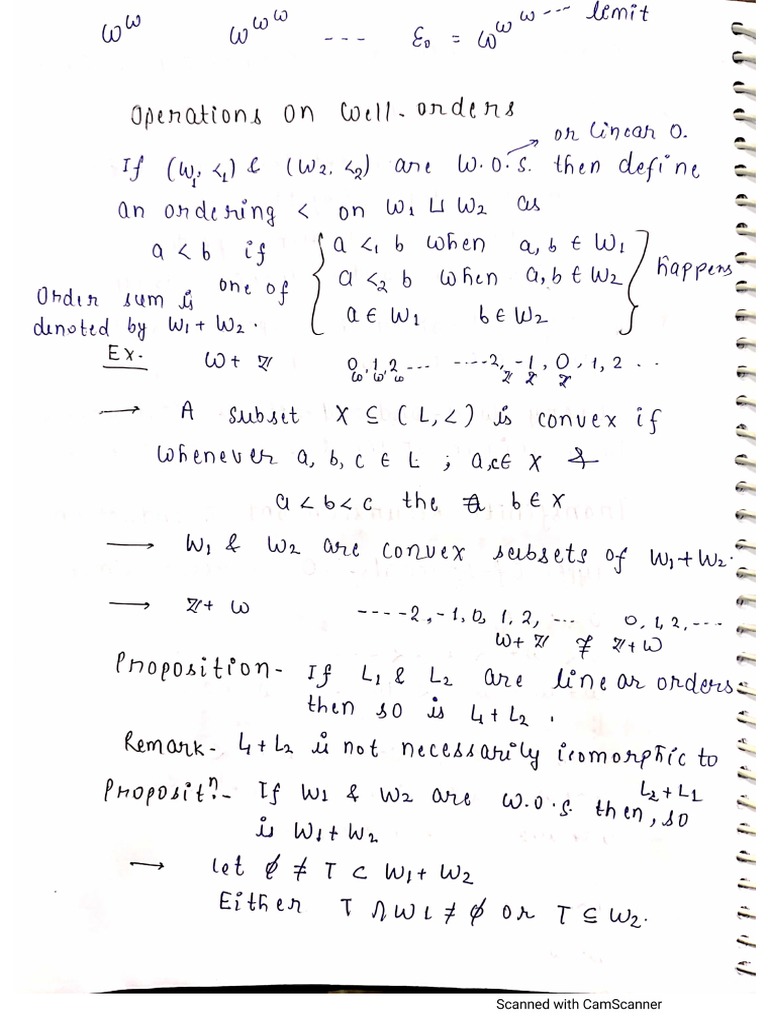 ω^ω ω^ω^ω --- ε₀ = ω^ω^ω^ω--- limit
Operations on Well-orders
or linear O.
If (W₁, <₁) & (W₂, <₂) are W.O.S. then define
an ordering < on W₁ ⊔ W₂ as
a < b if one of { a <₁ b when a, b ∈ W₁
a <₂ b when a, b ∈ W₂
a ∈ W₁ b ∈ W₂ } happens
Order sum is
denoted by W₁ + W₂.
Ex. ω + ℤ 0_ω, 1_ω, 2_ω --- ---- -2_ℤ, -1_ℤ, 0_ℤ, 1, 2 ..
→ A subset X ⊆ (L, <) is convex if
whenever a, b, c ∈ L ; a,c ∈ X &
a < b < c the b ∈ X
→ W₁ & W₂ are convex subsets of W₁ + W₂.
→ ℤ + ω ---- -2, -1, 0, 1, 2, --- 0, 1, 2, ---
ω + ℤ ≇ ℤ + ω
Proposition - If L₁ & L₂ are linear orders
then so is L₁ + L₂.
Remark - L₁ + L₂ is not necessarily isomorphic to
L₂ + L₁
Proposit.ⁿ - If W₁ & W₂ are w.o.s. then, so
is W₁ + W₂
→ Let ϕ ≠ T ⊂ W₁ + W₂
Either T ∩ W₁ ≠ ϕ or T ⊆ W₂.
Scanned with CamScanner